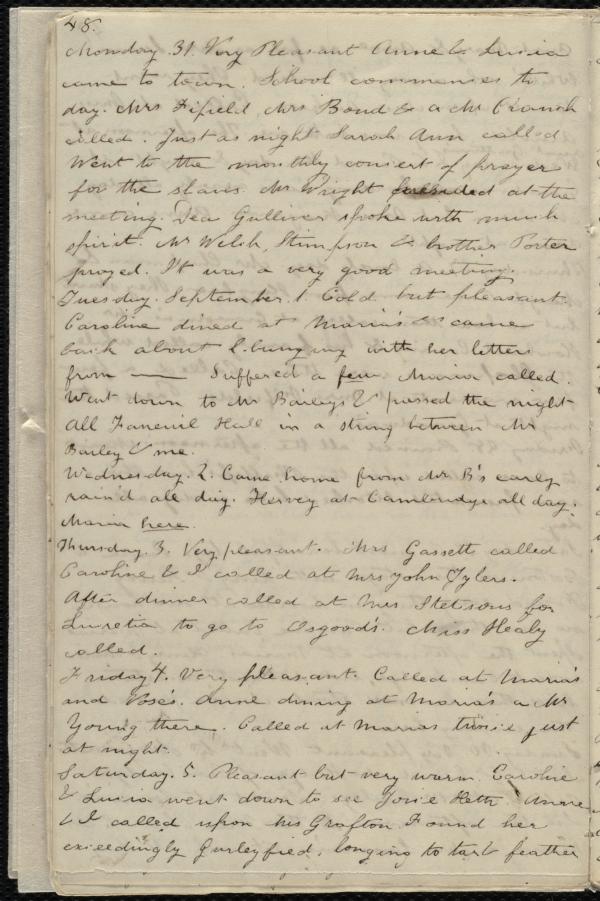 48.
Monday. 31. Very Pleasant Anne & Lucia
came to town. School commences to
day. Mrs Fifield Mrs Bond & a Mr Cranch
called. Just as night Sarah Ann called
Went to the monthly concert of prayer
for the slaves. Mr Wright presided at the
meeting. Dea Gulliver spoke with much
spirit. Mr Welsh, Stimpson & brother Porter
prayed. It was a very good meeting.
Tuesday. September. 1. Cold but pleasant.
Caroline dined at Maria's & came
back about 6. bringing with her letters
from —— Suffered a few Maria called.
Went down to Mr Baileys & passed the night
All Faneuil Hall in a string between Mr
Bailey & me.
Wednesday. 2. Came home from Mr B's early
rain'd all day. Hervey at Cambridge all day.
Maria here.
Thursday. 3. Very pleasant. Mrs Gassett called
Caroline & I called at Mrs John Tylers.
After dinner called at Mrs Stetsons for
Lucretia to go to Osgood's. Miss Healy
called.
Friday 4. Very pleasant. Called at Maria's
and Vose's. Anne dining at Maria's a Mr
Young there. Called at Marias twice just
at night.
Saturday. 5. Pleasant but very warm. Caroline
& Lucia went down to see Josie Heth. Anne
& I called upon Mrs Grafton. Found her
exceedingly Gurleyfied, longing to tar & feather